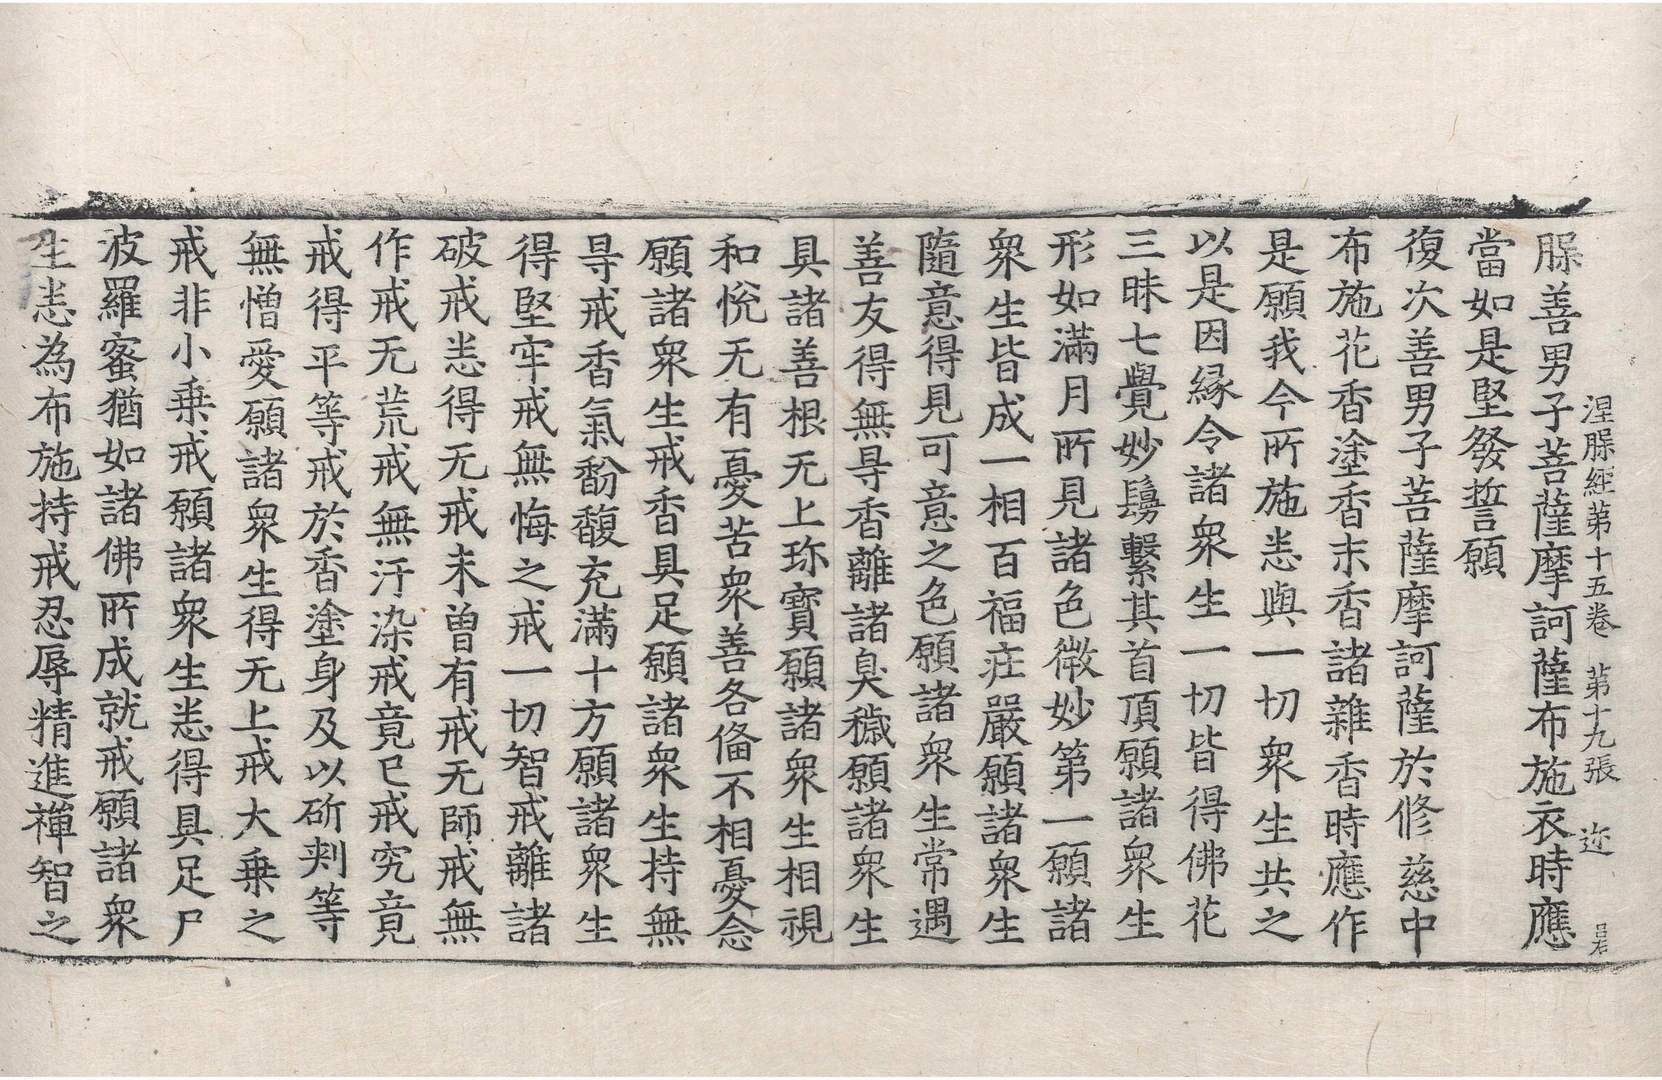 涅㮈經第十五卷　第十九張　迩　吕
㮈善男子菩薩摩訶薩布施衣時應
當如是堅發誓願
復次善男子菩薩摩訶薩於修慈中
布施花香塗香末香諸雜香時應作
是願我今所施悉與一切眾生共之
以是因緣令諸眾生一切皆得佛花
三昧七覺妙鬘繫其首頂願諸眾生
形如滿月所見諸色微妙第一願諸
眾生皆成一相百福莊嚴願諸眾生
隨意得見可意之色願諸眾生常遇
善友得無㝵香離諸臭穢願諸眾生
具諸善根无上珎寳願諸眾生相視
和悅无有憂苦眾善各俻不相憂念
願諸眾生戒香具足願諸眾生持無
㝵戒香氣馚馥充滿十方願諸眾生
得堅牢戒無悔之戒一切智戒離諸
破戒悉得无戒未曾有戒无師戒無
作戒无荒戒無汙染戒竟已戒究竟
戒得平等戒於香塗身及以斫刾等
無憎愛願諸眾生得无上戒大乗之
戒非小乗戒願諸眾生悉得具足尸
波羅蜜猶如諸佛所成就戒願諸眾
生悉為布施持戒忍辱精進禪智之